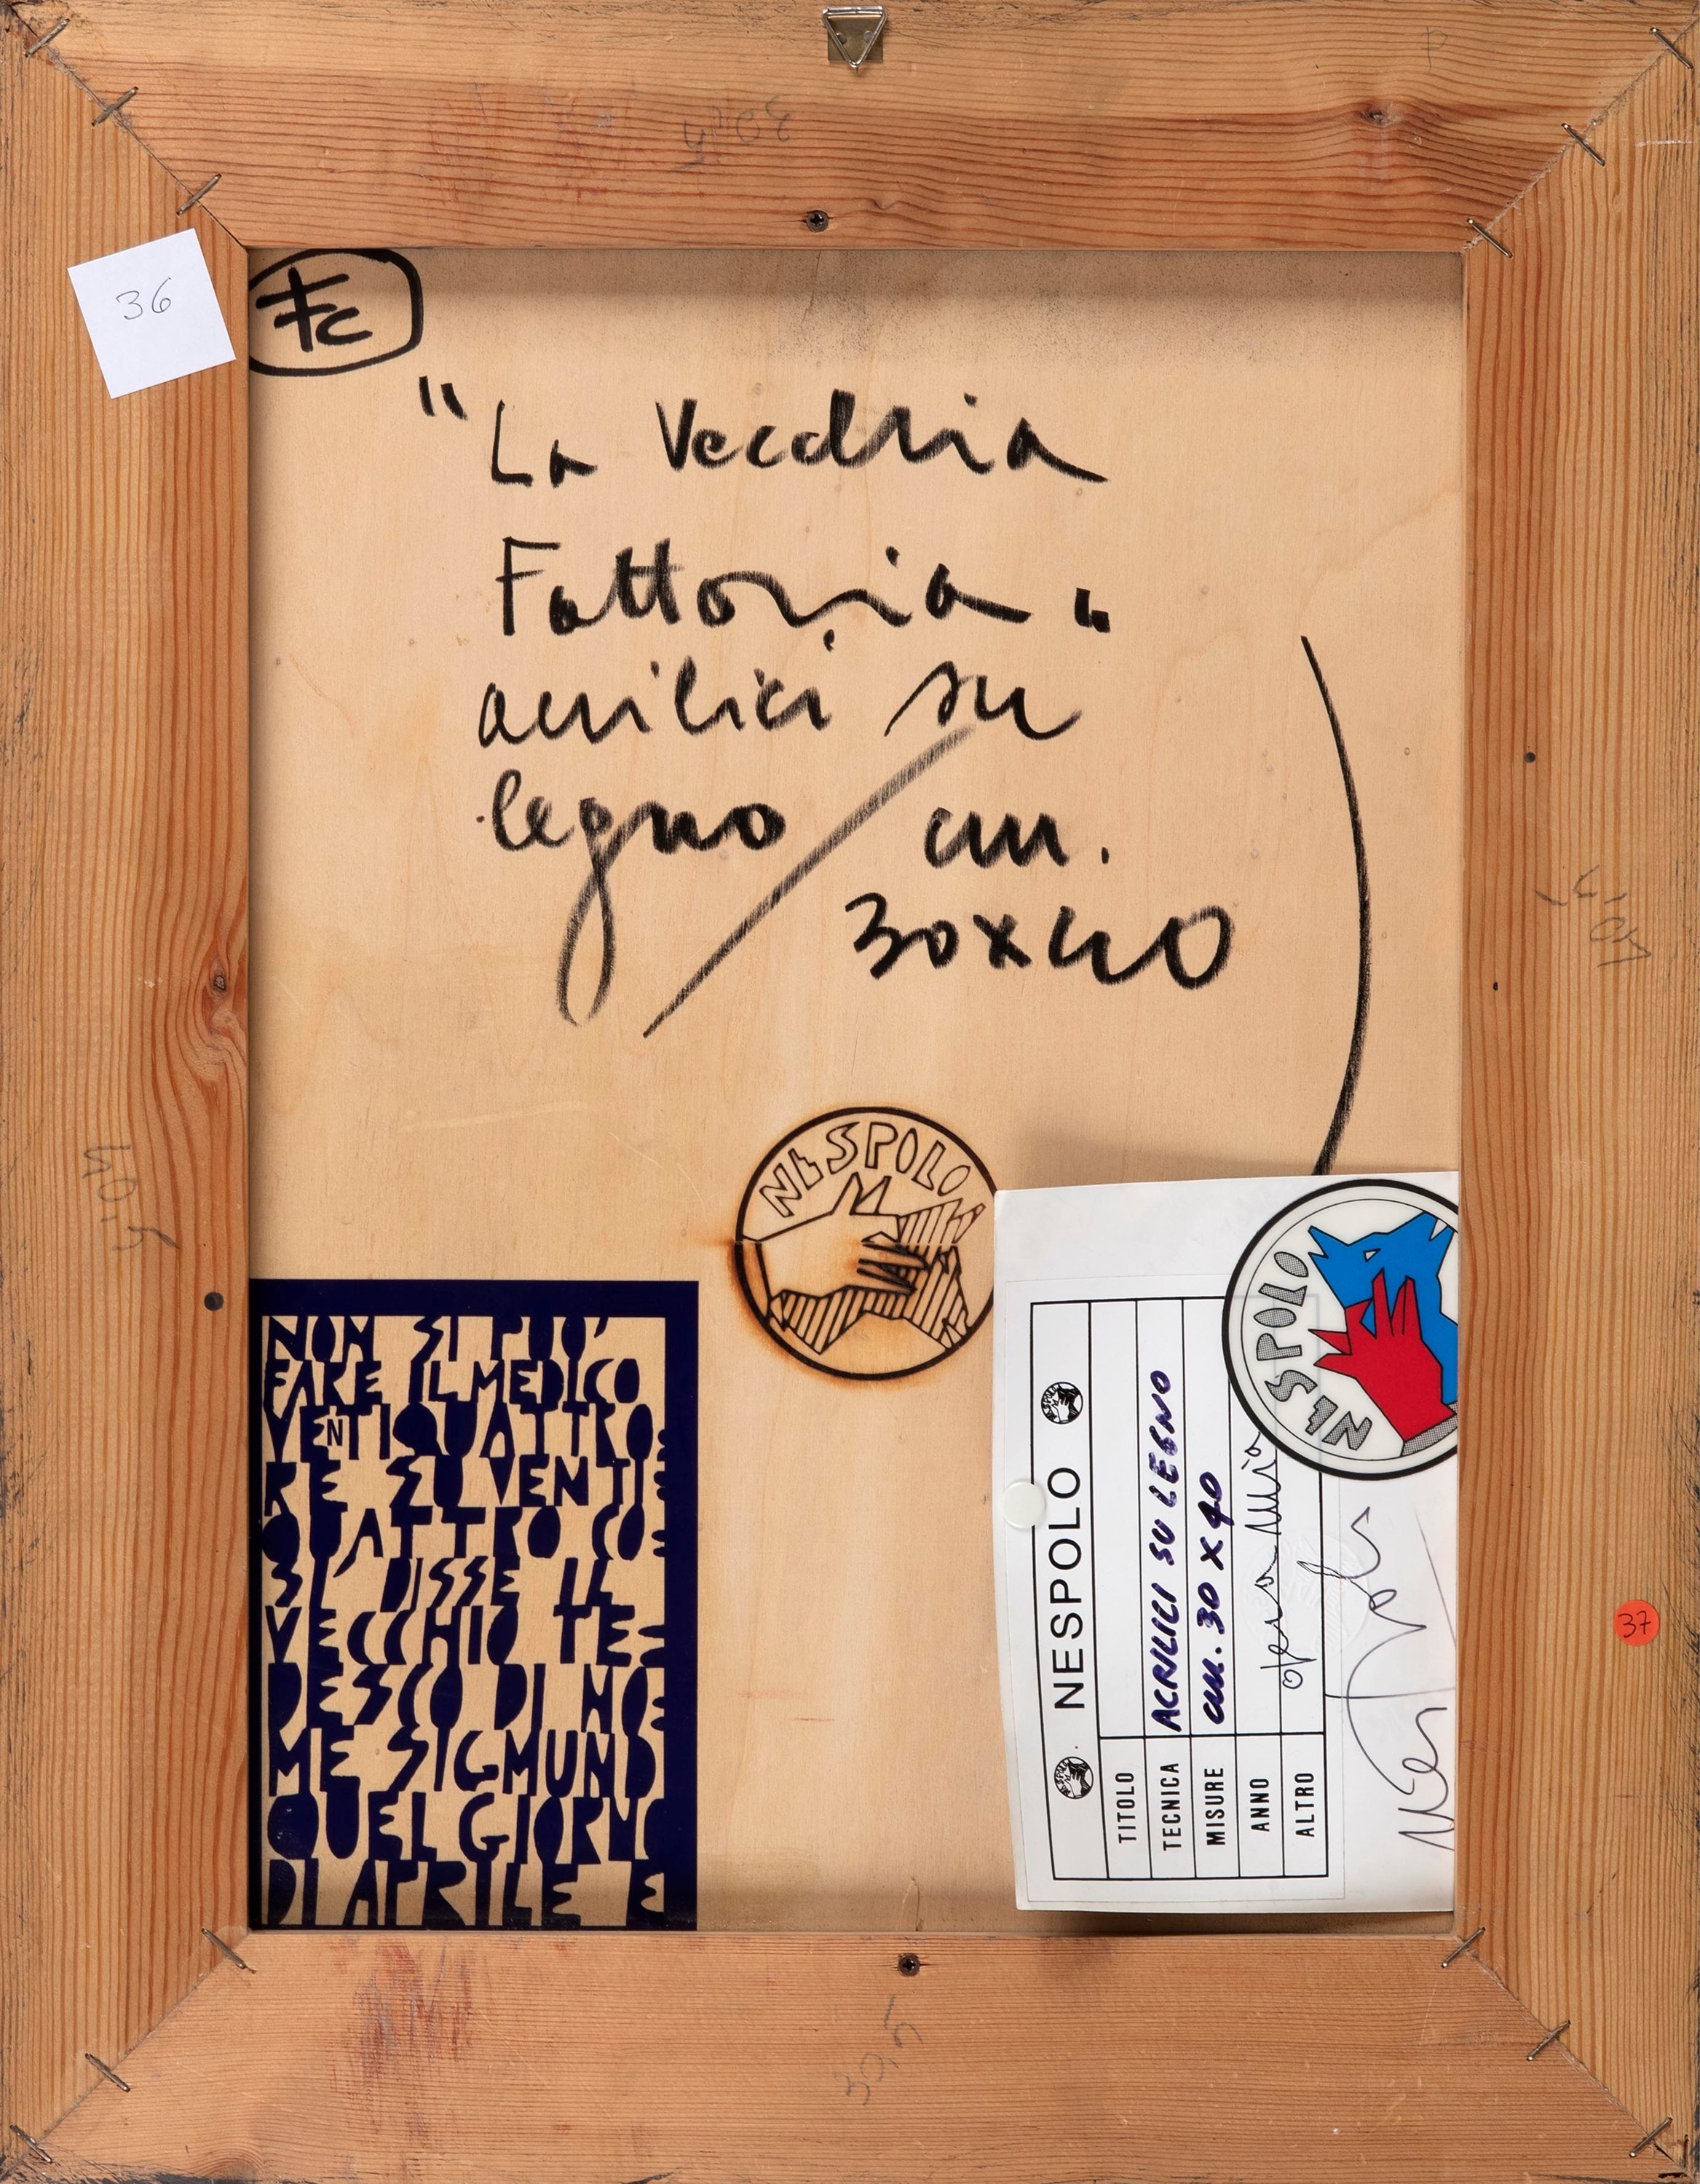 30,5
36
Fc
"La Vecchia
Fattoria"
acrilici su
legno / cm.
30x40
40,5
40,5
NESPOLO
NON SI PUO'
FARE IL MEDICO
VENTIQUATTRO
RE SU VENTI=
QUATTRO CO=
SI' DISSE IL
VECCHIO TE=
DESCO DI NO=
ME SIGMUND
QUEL GIORNO
DI APRILE E
NESPOLO
NESPOLO
TITOLO
TECNICA ACRILICI SU LEGNO
MISURE cm. 30 x 40
ANNO
ALTRO opera mia
Nespolo
37
30,5